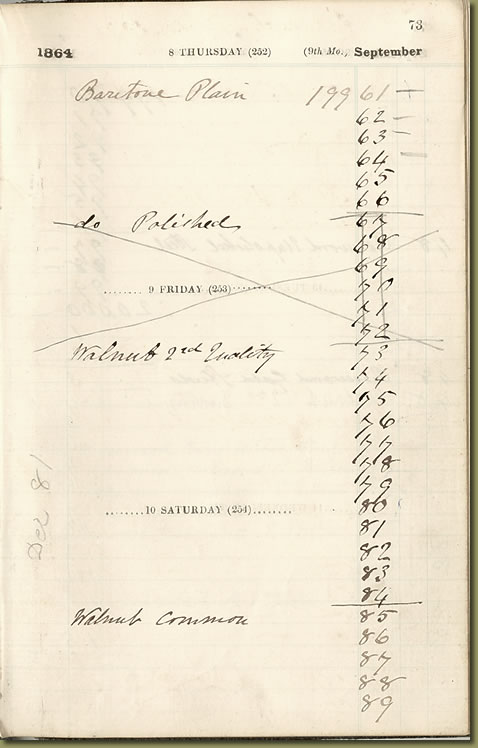 73
1864 8 THURSDAY (252) (9th Mo.) September
Baritone Plain 199 61 —
62 —
63 —
64 —
65
66
do Polished 67
68
69
9 FRIDAY (253) 70
71
72
Walnut 2nd Quality 73
74
75
76
77
78
79
10 SATURDAY (254) 80
81
82
83
84
Walnut Common 85
86
87
88
89
Dec 81